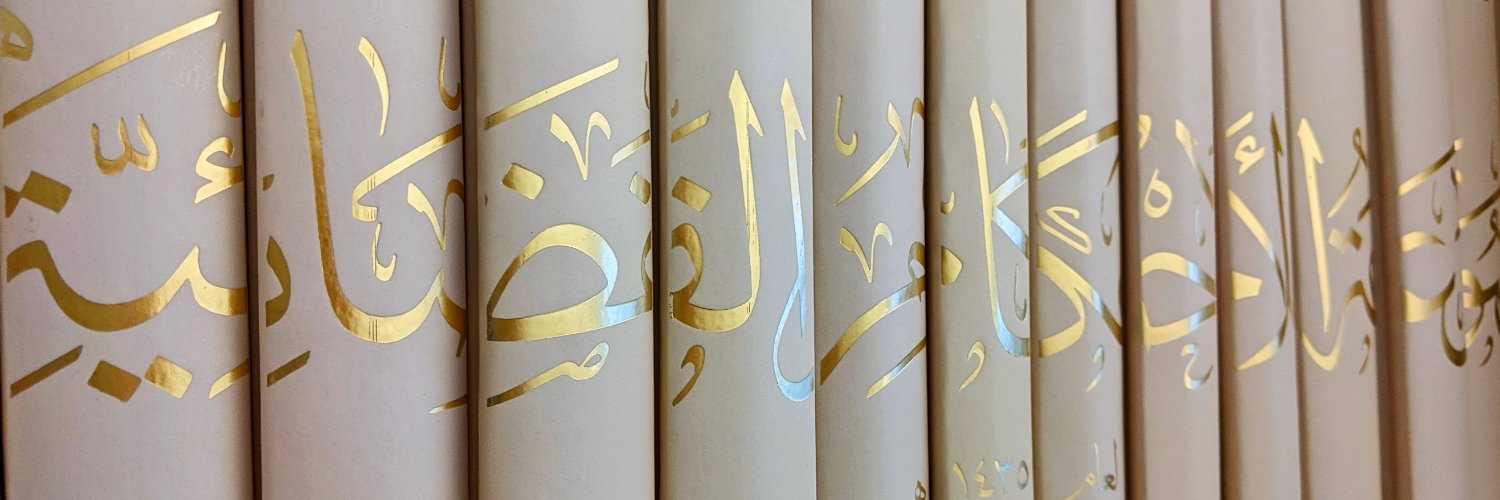 موسوعة الأحكام القضائية
لعام ١٤٣٥ هـ